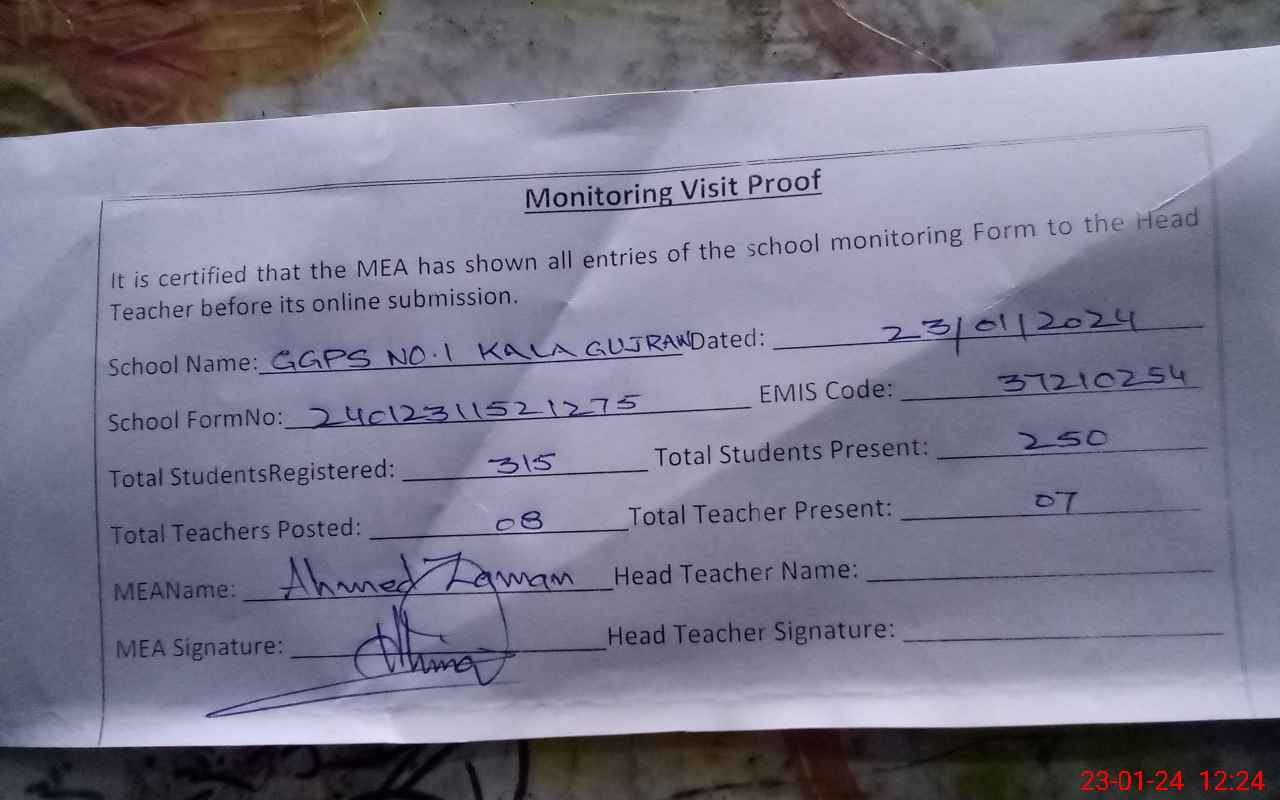 Monitoring Visit Proof
It is certified that the MEA has shown all entries of the school monitoring Form to the Head
Teacher before its online submission.
School Name: GGPS NO.1 KALA GUJRAN Dated: 23/01/2024
School FormNo: 24012311521275 EMIS Code: 37210254
Total StudentsRegistered: 315 Total Students Present: 250
Total Teachers Posted: 08 Total Teacher Present: 07
MEAName: Ahmed Zaman Head Teacher Name:
MEA Signature: Head Teacher Signature:
23-01-24 12:24